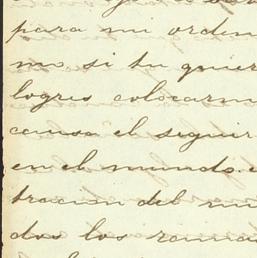 para mi orden
mo si tu quier
logres colocarm
causa el seguir
en el mundo. e
tracion del mu
dos los